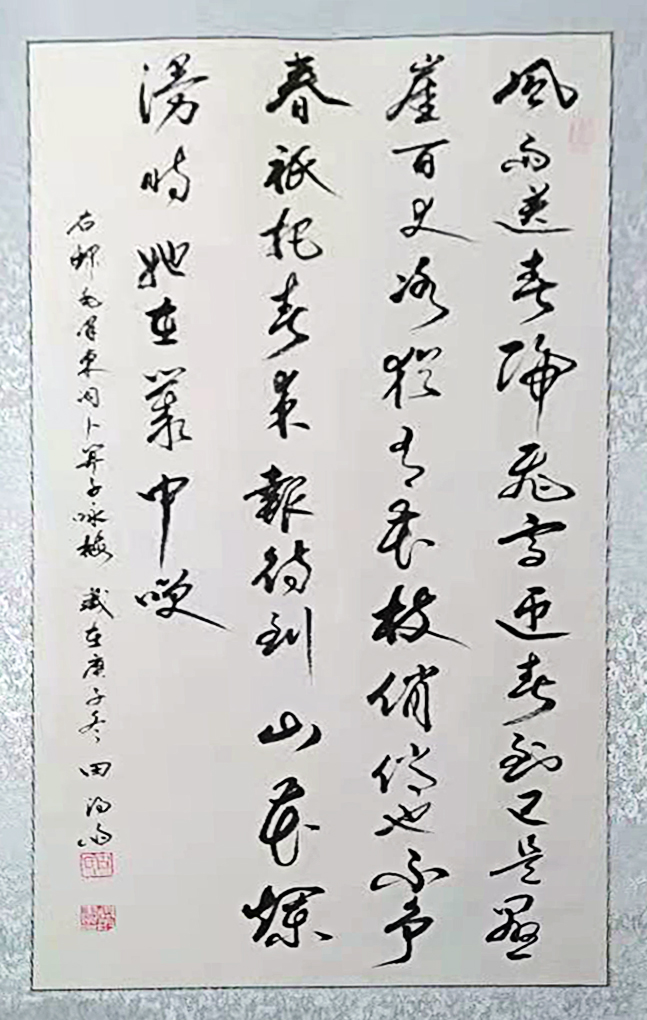 風雨送春歸飛雪迎春到已是懸
崖百丈冰猶有花枝俏俏也不争
春祇把春来報待到山花爛
漫時她在叢中咲
右録毛澤東词卜算子咏梅 歲在庚子冬 田